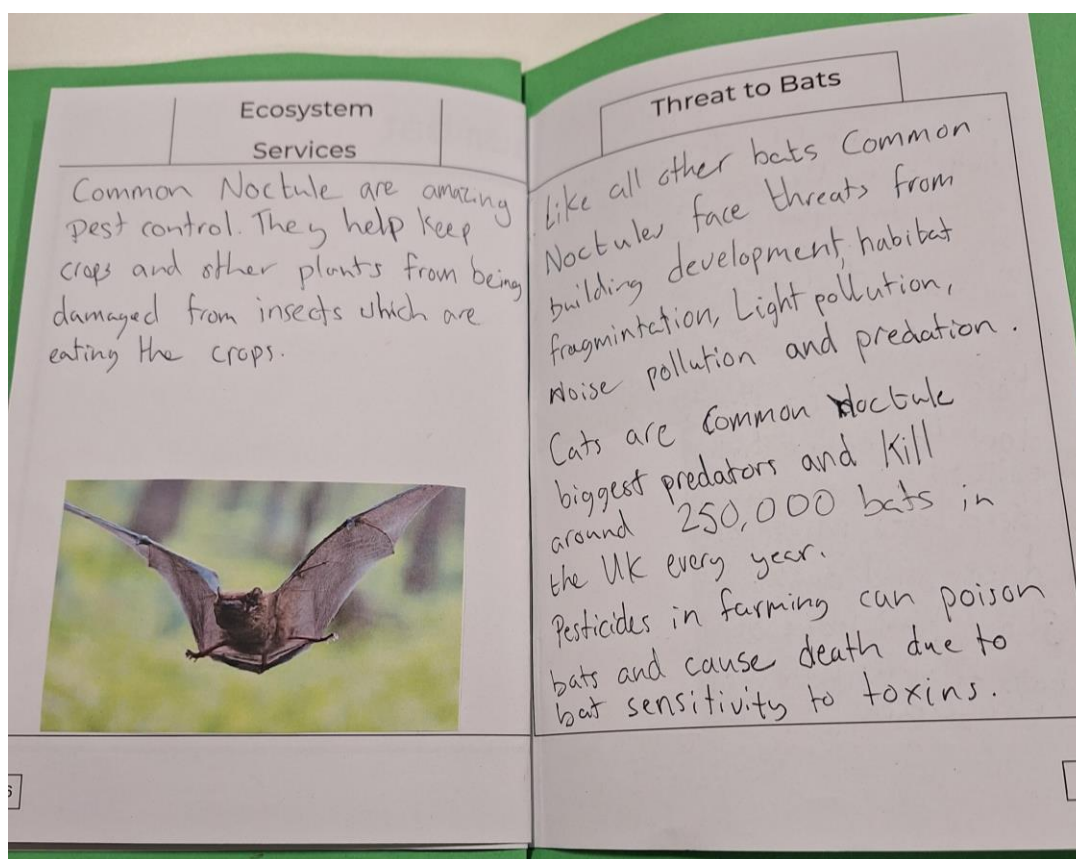 Ecosystem
Services
Common Noctule are amazing
pest control. They help keep
crops and other plants from being
damaged from insects which are
eating the crops.
Threat to Bats
Like all other bats Common
Noctules face threats from
building development, habitat
fragmintation, Light pollution,
Noise pollution and predation.
Cats are Common Noctule
biggest predators and kill
around 250,000 bats in
the UK every year.
Pesticides in farming can poison
bats and cause death due to
bat sensitivity to toxins.